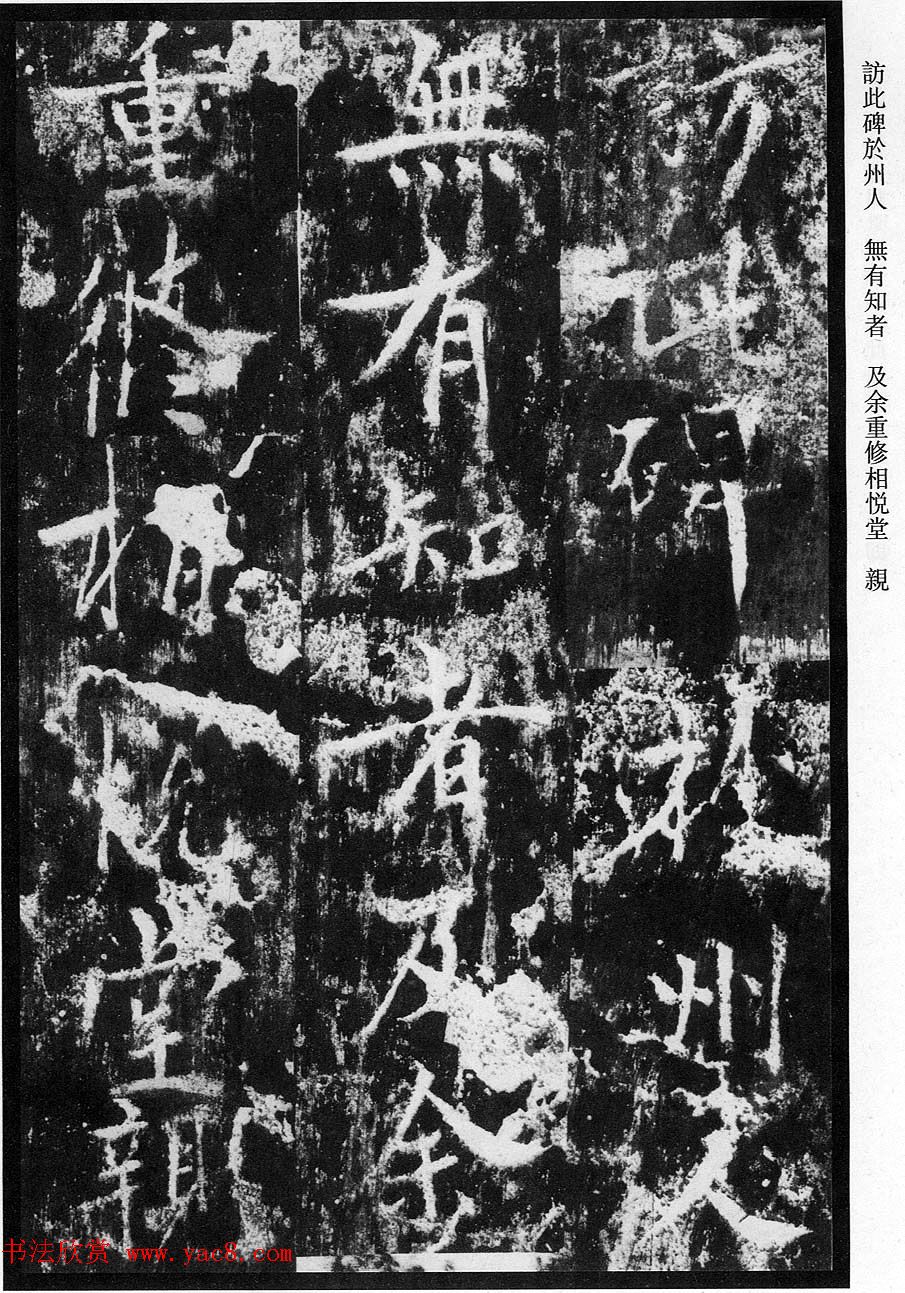 訪此碑於州人
無有知者及余
重修相悅堂親
訪此碑於州人　無有知者　及余重修相悅堂　親
书法欣赏 www.yac8.com